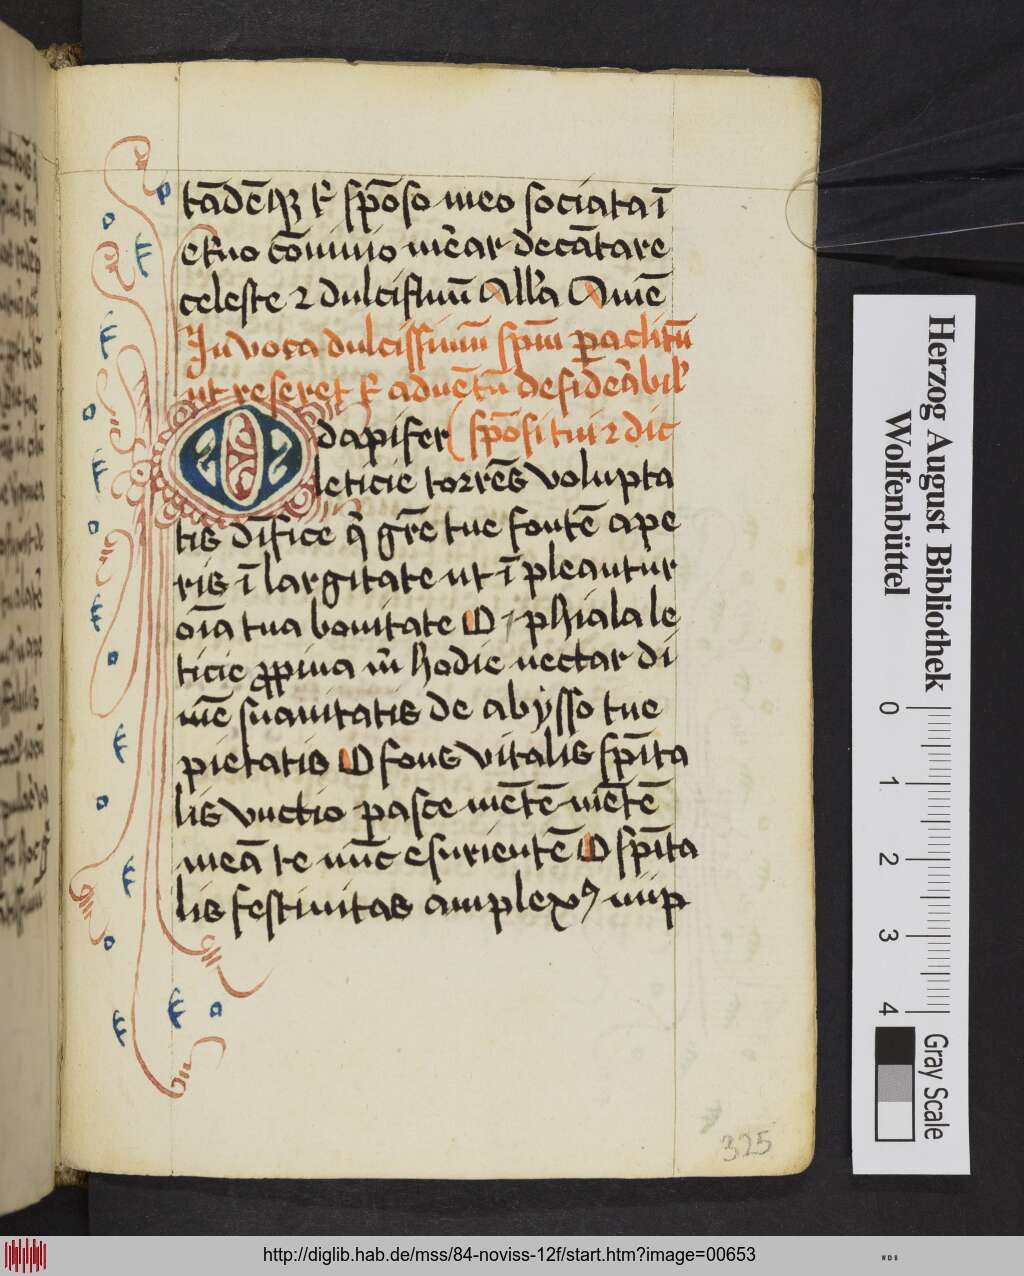 tādēq₃ t᷑ spōso meo sociata ī
et᷑no cōnivio mēar decātare
celeste ⁊ dulcifluū Allᷓa Amē
Jnvoca dulcissimū spm̄ ꝑaclitū
ut reseret t᷑ aduētū desideᷓbilˀ
O dapifer spōsi tui ⁊ dic
leticie torrēs volupta
tis dīfice q̄ grē tue fontē ape
ris ī largitate ut īpleantur
oīa tua bonitate O phiala le
ticie ꝓpina m̄ hodie nectar di
uīe suauitatis de abysso tue
pietatis O fons vitalis spīta
lis vnctio ꝑasce mētē mētē
meā te nūc esurientē O spīta
lis festiuitas amplexꝰ
325
Herzog August Bibliothek
Wolfenbüttel
0 1 2 3 4
Gray Scale
http://diglib.hab.de/mss/84-noviss-12f/start.htm?image=00653
WDB